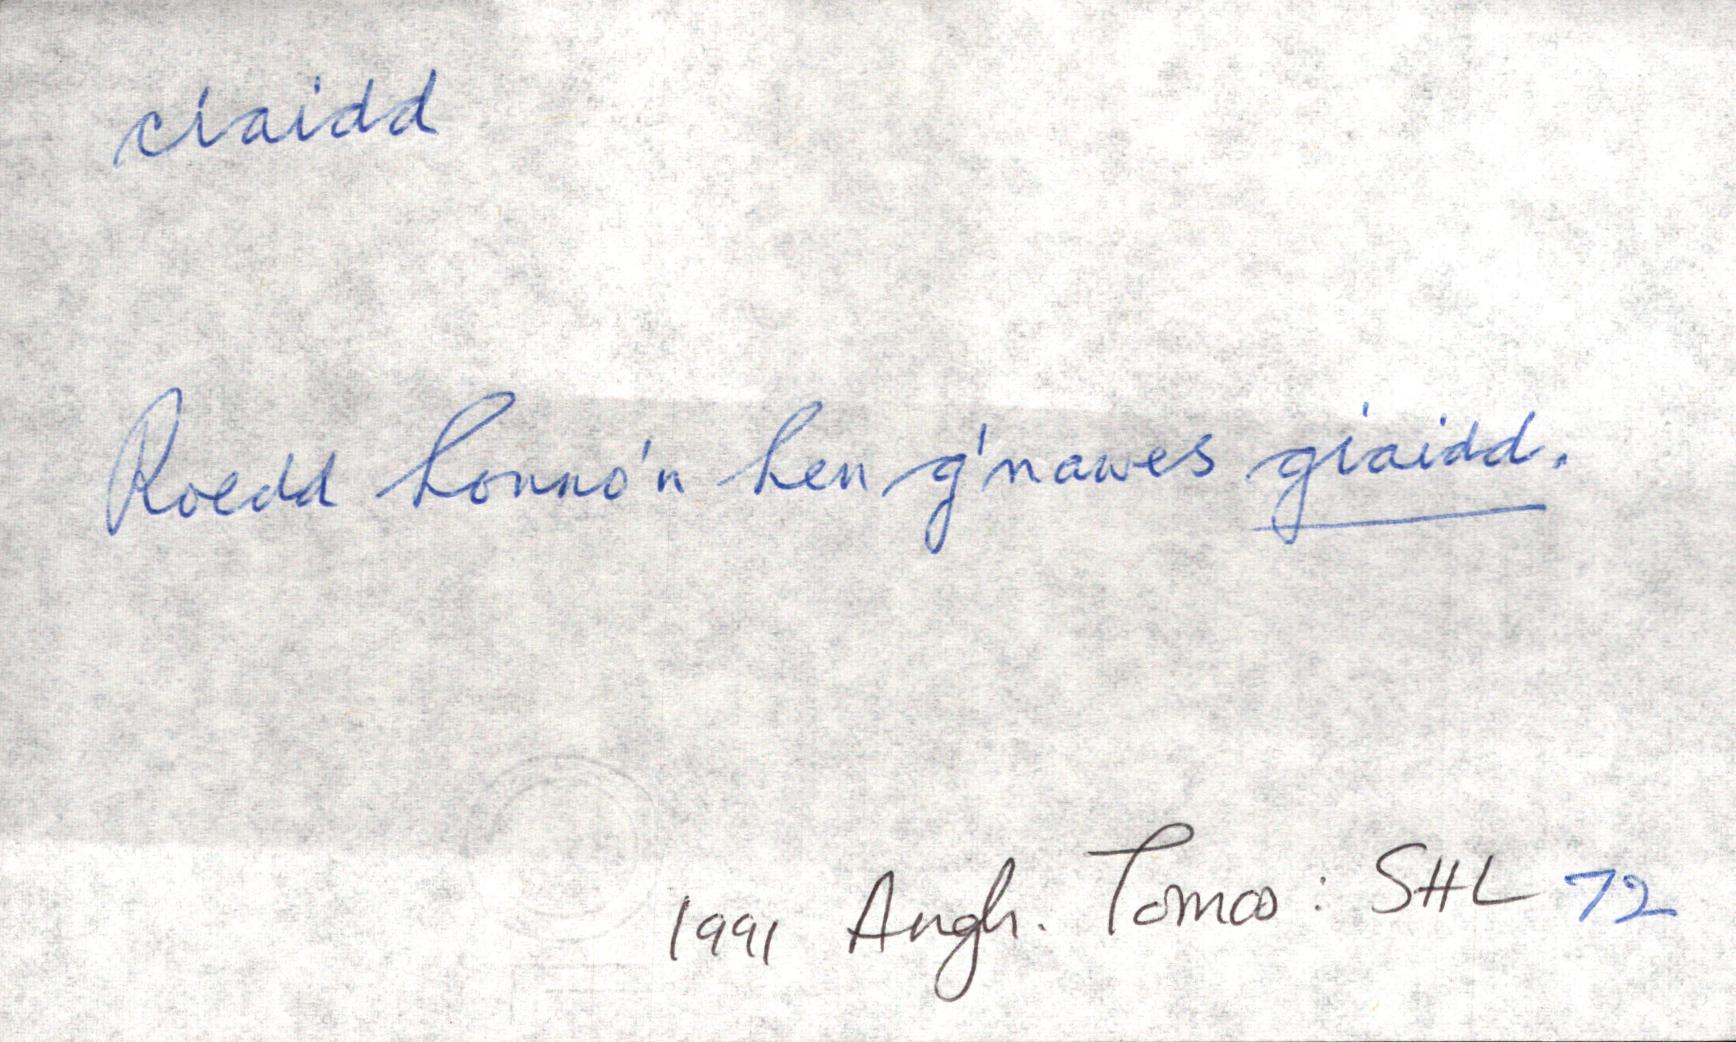 ciaidd
Roedd honno'n hen g'nawes giaidd.
1991 Angh. Tomos : SHL 72